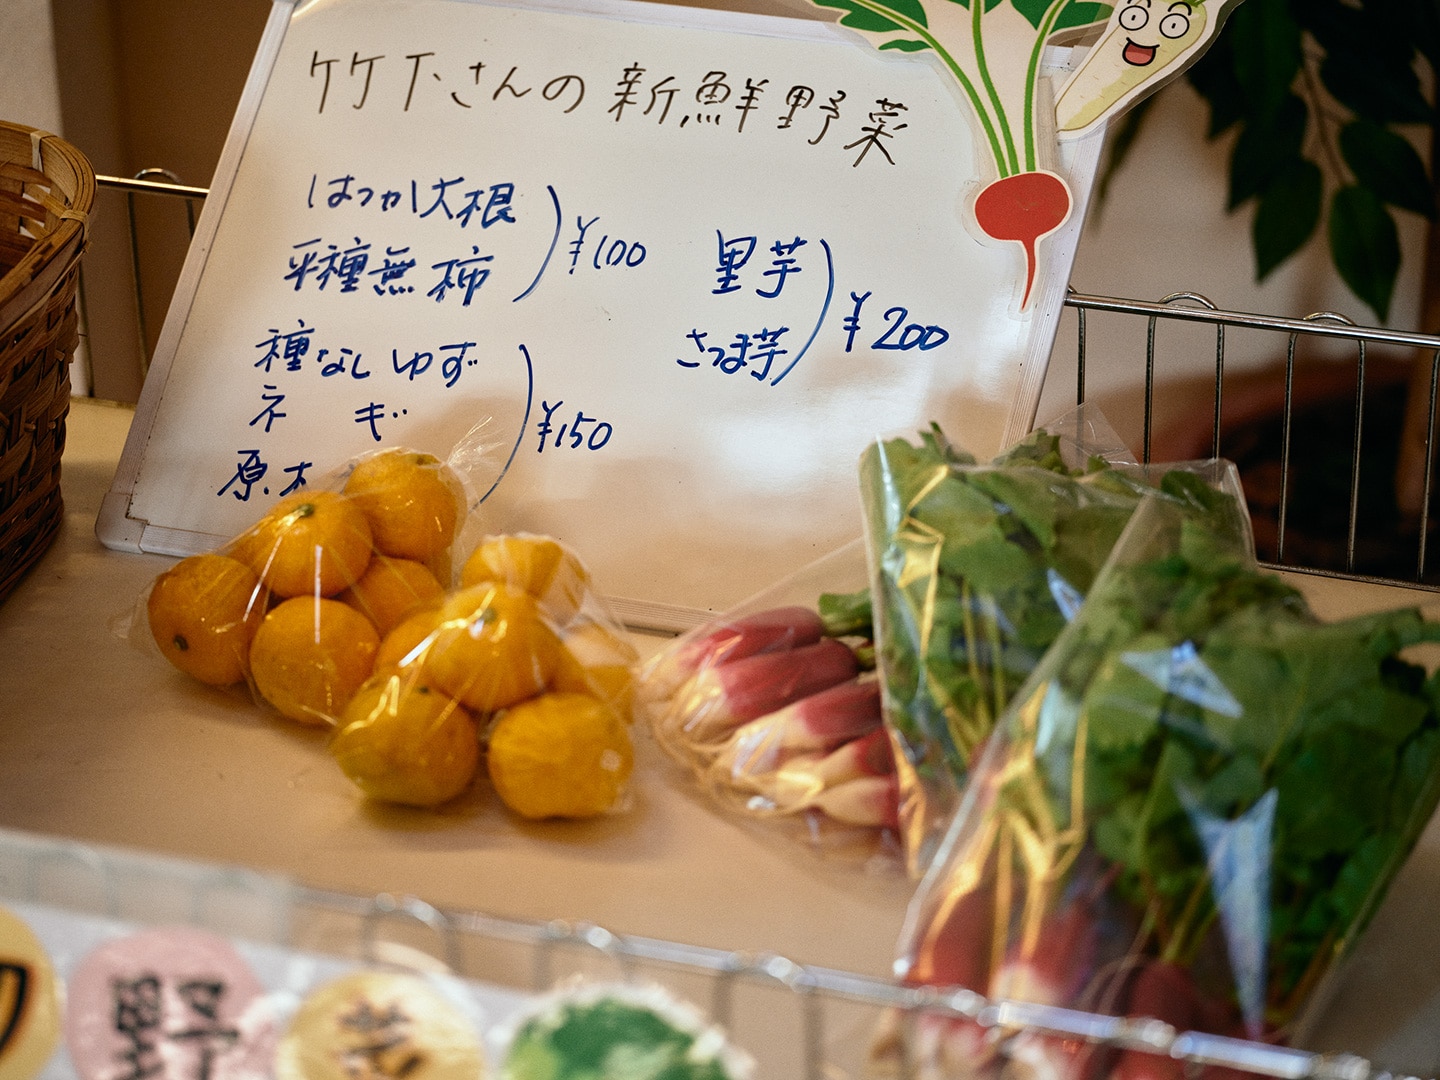 竹下さんの新鮮野菜
はつかし大根
平種無柿
¥100
種なしゆず
ネギ
原木
¥150
里芋
さつま芋
¥200
野
菜